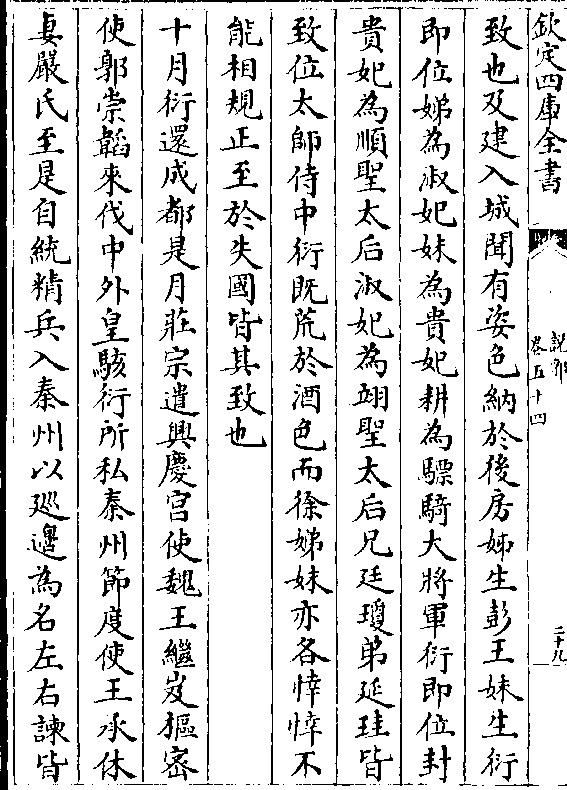 欽定四庫全書
說郛
卷五十四
二十九
致也及建入城聞有姿色納於後房姊生彭王妹生衍
即位娣為淑妃妹為貴妃耕為驃騎大將軍衍即位封
貴妃為順聖太后淑妃為翊聖太后兄廷瓊弟延珪皆
致位太師侍中衍既荒於酒色而徐娣妹亦各悻悻不
能相規正至於失國皆其致也
十月衍還成都是月莊宗遣興慶宫使魏王繼岌樞密
使郭崇韜來伐中外皇駭衍所私秦州節度使王承休
妻嚴氏至是自統精兵入秦州以廵邊為名左右諫皆